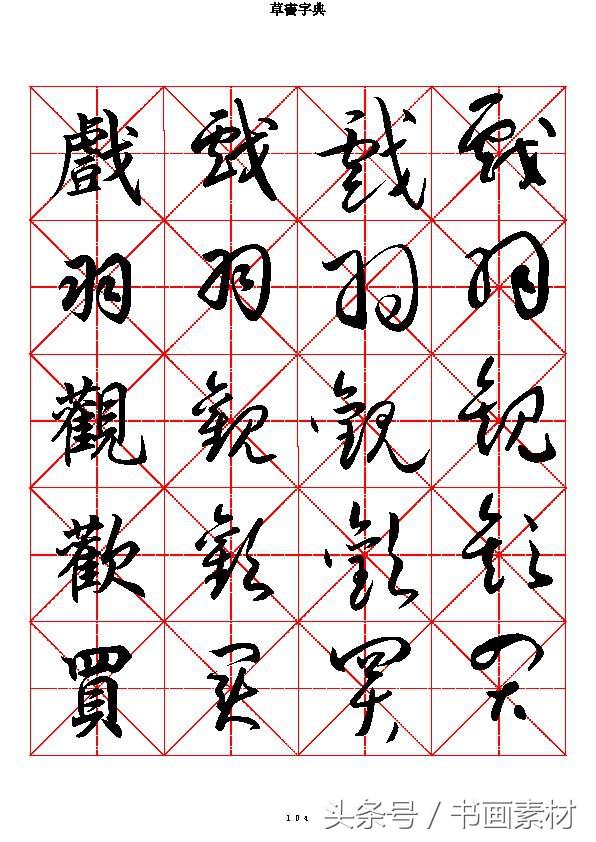 草書字典
戲 戲 戲 戲
羽 羽 羽 羽
觀 觀 觀 觀
歡 歡 歡 歡
買 買 買 買
104
头条号 / 书画素材